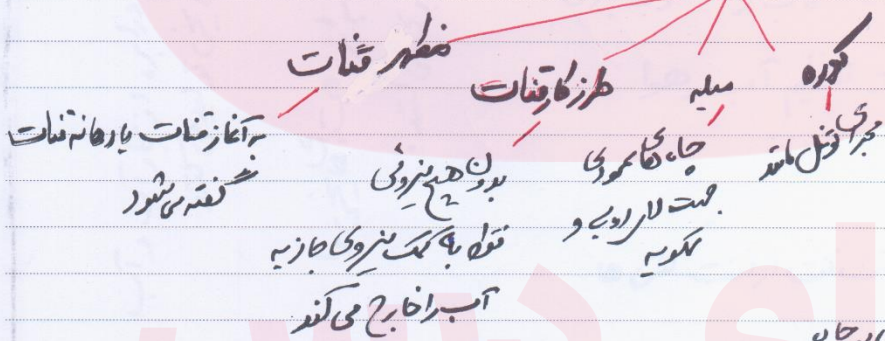 کوره
مجرای تونل مانند
میله
چاه‌های عمودی
جهت لایروبی و
تهویه
طرز کار قنات
بدون هیچ نیروئی
فقط به کمک نیروی جاذبه
آب را خارج می کند
مظهر قنات
به آغاز قنات یا دهانه قنات
گفته می شود